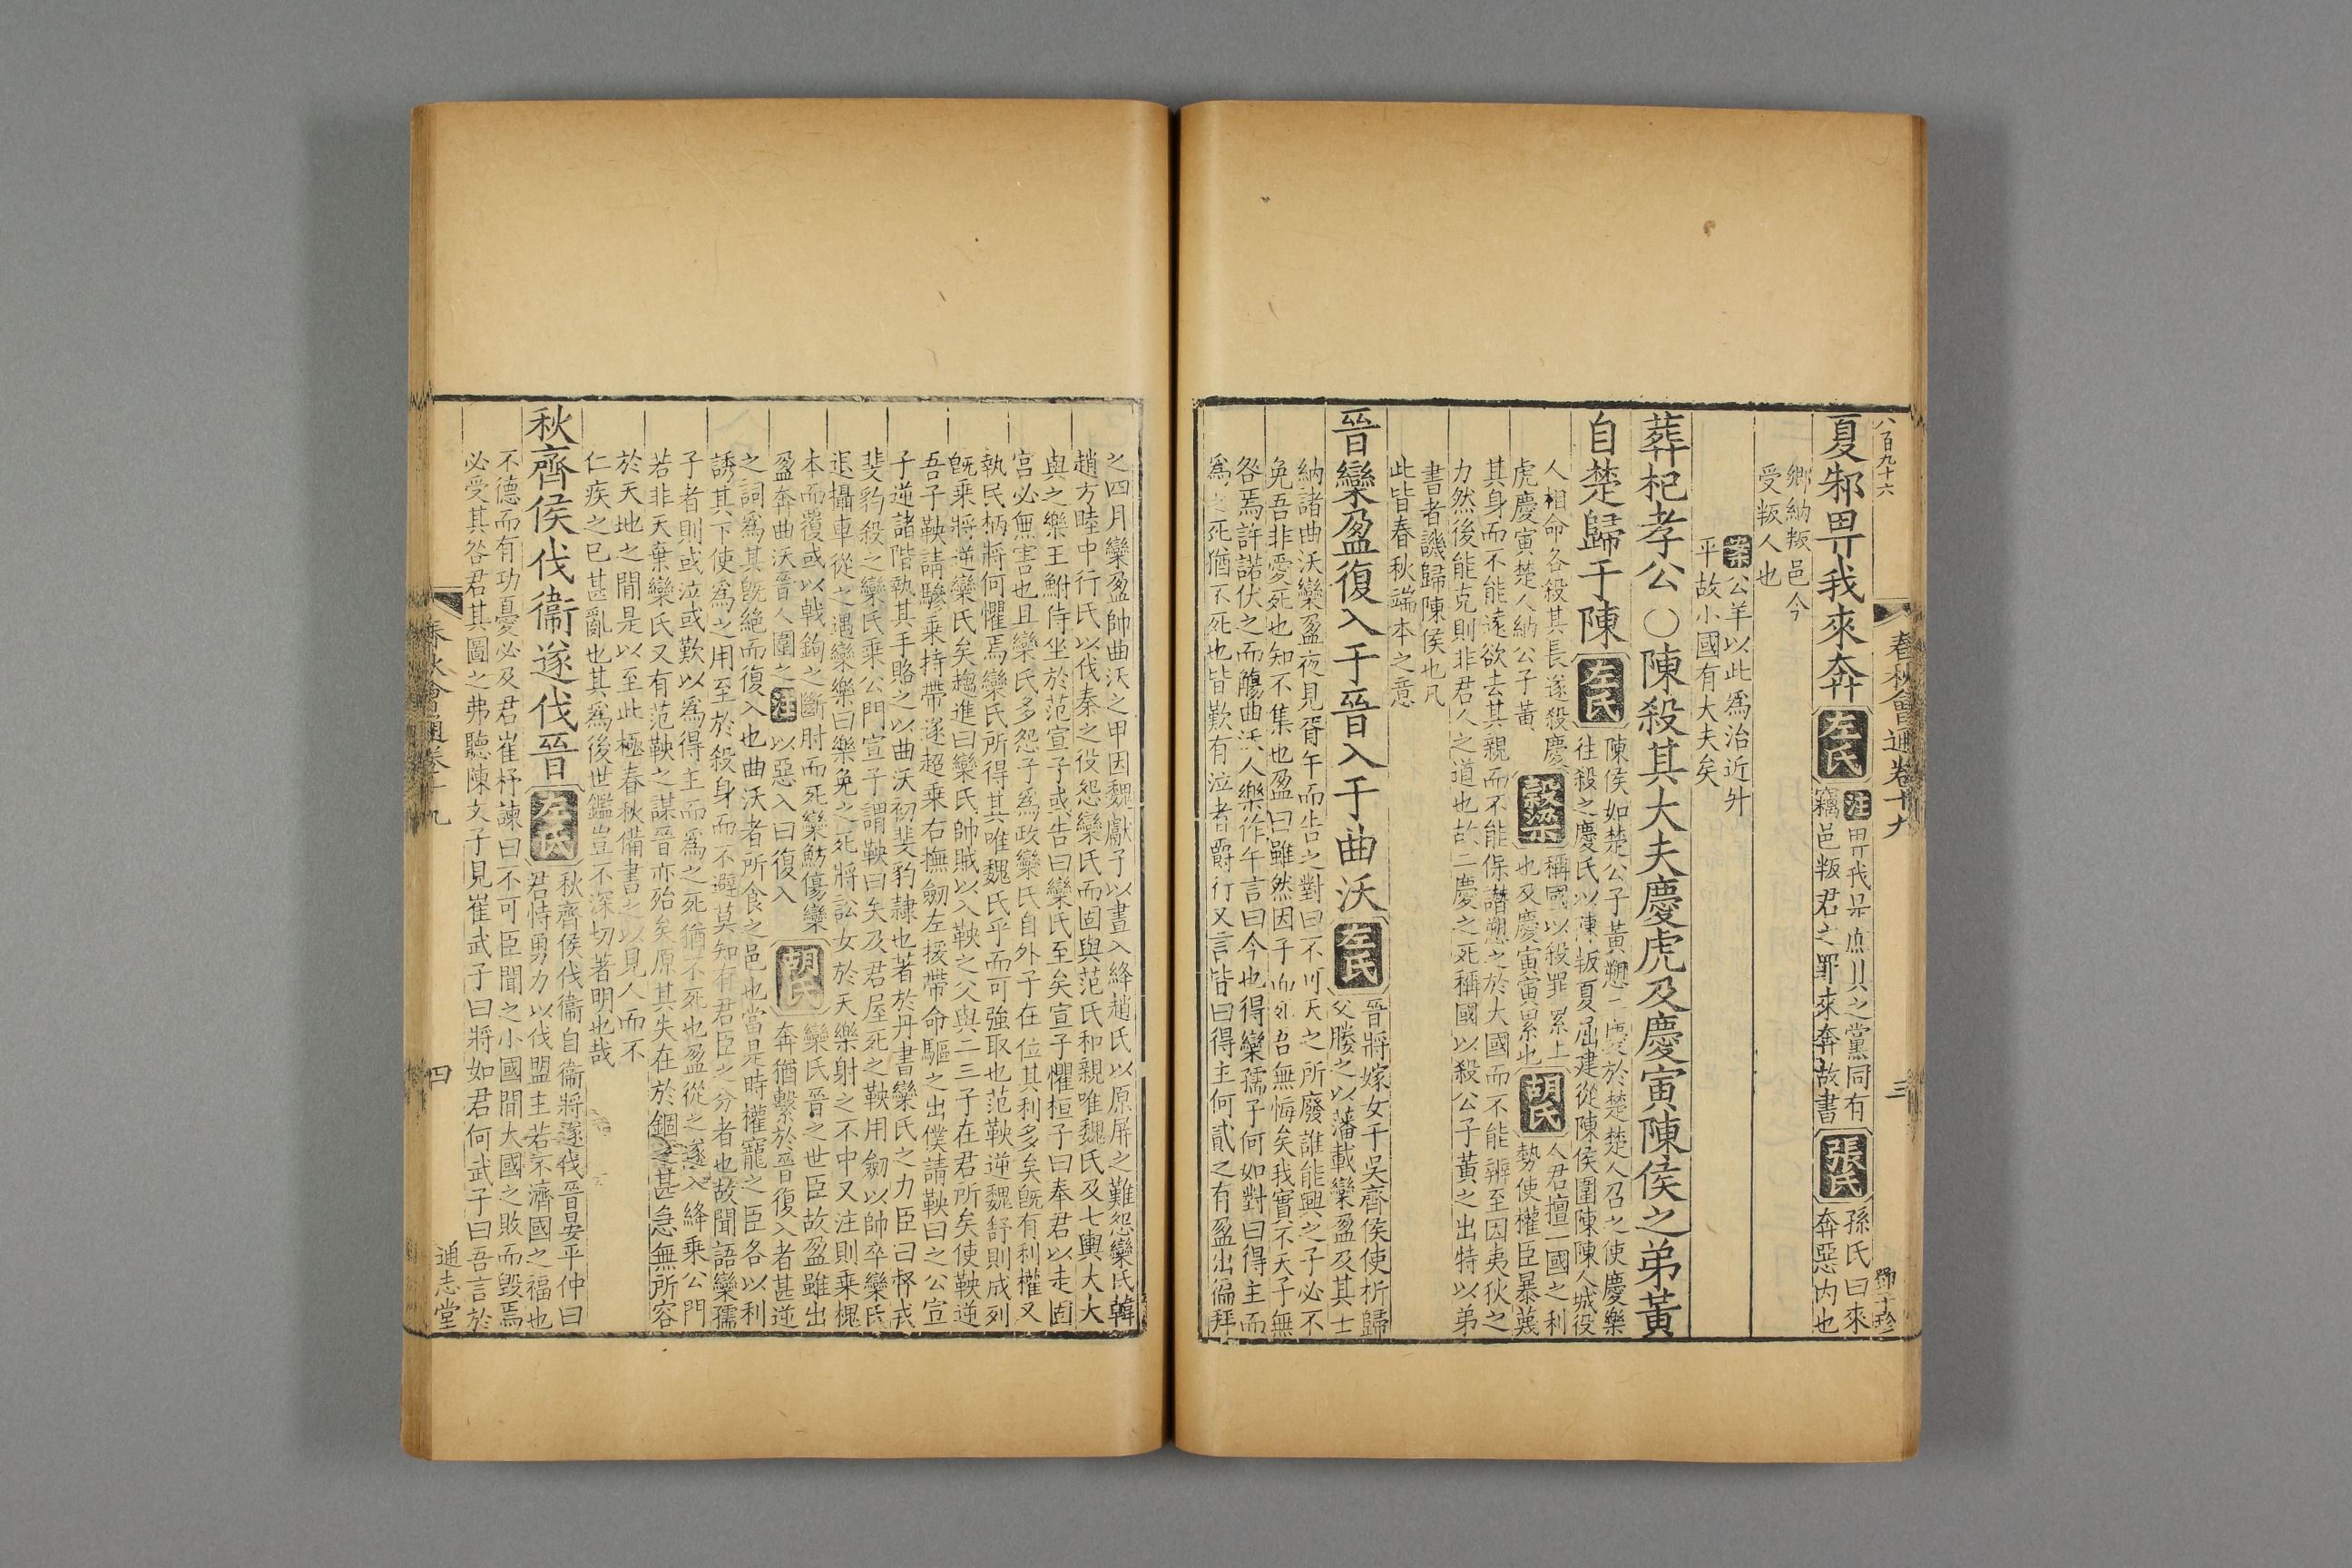 八百九十六
春秋會通卷十九
三
鄧子珍
夏邾畀我來奔
左氏
注畀我是庶其之黨同有
竊邑叛君之罪來奔故書
張氏
孫氏曰來
奔惡内也
鄉納叛邑今
受叛人也
案公羊以此爲治近升
平故小國有大夫矣
葬杞孝公〇陳殺其大夫慶虎及慶寅陳侯之弟黃
自楚歸于陳
左氏
陳侯如楚公子黃愬二慶於楚楚人召之使慶樂
往殺之慶氏以陳叛夏屈建從陳侯圍陳陳人城役
人相命各殺其長遂殺慶
虎慶寅楚人納公子黃
穀梁
稱國以殺罪累上
也及慶寅寅累也
胡氏
人君擅一國之利
勢使權臣暴蔑
其身而不能遠欲去其親而不能保譖愬之於大國而不能辨至因夷狄之
力然後能克則非君人之道也故二慶之死稱國以殺公子黃之出特以弟
書者譏歸陳侯也凡
此皆春秋端本之意
晉欒盈復入于晉入于曲沃
左氏
晉將嫁女于吳齊侯使析歸
父媵之以藩載欒盈及其士
納諸曲沃欒盈夜見胥午而告之對曰不可天之所廢誰能興之子必不
免吾非愛死也知不集也盈曰雖然因子而死吾無悔矣我實不天子無
咎焉許諾伏之而觴曲沃人樂作午言曰今也得欒孺子何如對曰得主而
爲之死猶不死也皆歎有泣者爵行又言皆曰得主何貳之有盈出徧拜
之四月欒盈帥曲沃之甲因魏獻子以晝入絳趙氏以原屏之難怨欒氏韓
趙方睦中行氏以伐秦之役怨欒氏而固與范氏和親唯魏氏及七輿大夫
與之樂王鮒侍坐於范宣子或告曰欒氏至矣宣子懼桓子曰奉君以走固
宮必無害也且欒氏多怨子爲政欒氏自外子在位其利多矣既有利權又
執民柄將何懼焉欒氏所得其唯魏氏乎而可強取也范鞅逆魏舒則成列
既乘將逆欒氏矣趨進曰欒氏帥賊以入鞅之父與二三子在君所矣使鞅逆
吾子鞅請驂乘持帶遂超乘右撫劒左援帶命驅之出僕請鞅曰之公宣
子逆諸階執其手賂之以曲沃初斐豹隸也著於丹書欒氏之力臣曰督戎
斐豹殺之欒氏乘公門宣子謂鞅曰矢及君屋死之鞅用劒以帥卒欒氏
退攝車從之遇欒樂曰樂免之死將訟女於天樂射之不中又注則乘槐
本而覆或以戟鉤之斷肘而死欒魴傷欒
盈奔曲沃晉人圍之
注以惡入曰復入
胡氏
欒氏晉之世臣故盈雖出
奔猶繫於晉復入者甚逆
之詞爲其既絕而復入也曲沃者所食之邑也當是時權寵之臣各以利
誘其下使爲之用至於殺身而不避莫知有君臣之分者也故聞語欒孺
子者則或泣或歎以爲得主而爲之死猶不死也盈從之遂入絳乘公門
若非天棄欒氏又有范鞅之謀晉亦殆矣原其失在於錮之甚急無所容
於天地之間是以至此極春秋備書之以見人而不
仁疾之已甚亂也其爲後世鑑豈不深切著明也哉
秋齊侯伐衞遂伐晉
左氏
秋齊侯伐衞自衞將遂伐晉晏平仲曰
君恃勇力以伐盟主若不濟國之福也
不德而有功憂必及君崔杼諫曰不可臣聞之小國間大國之敗而毀焉
必受其咎君其圖之弗聽陳文子見崔武子曰將如君何武子曰吾言於
春秋會通卷十九
四
通志堂